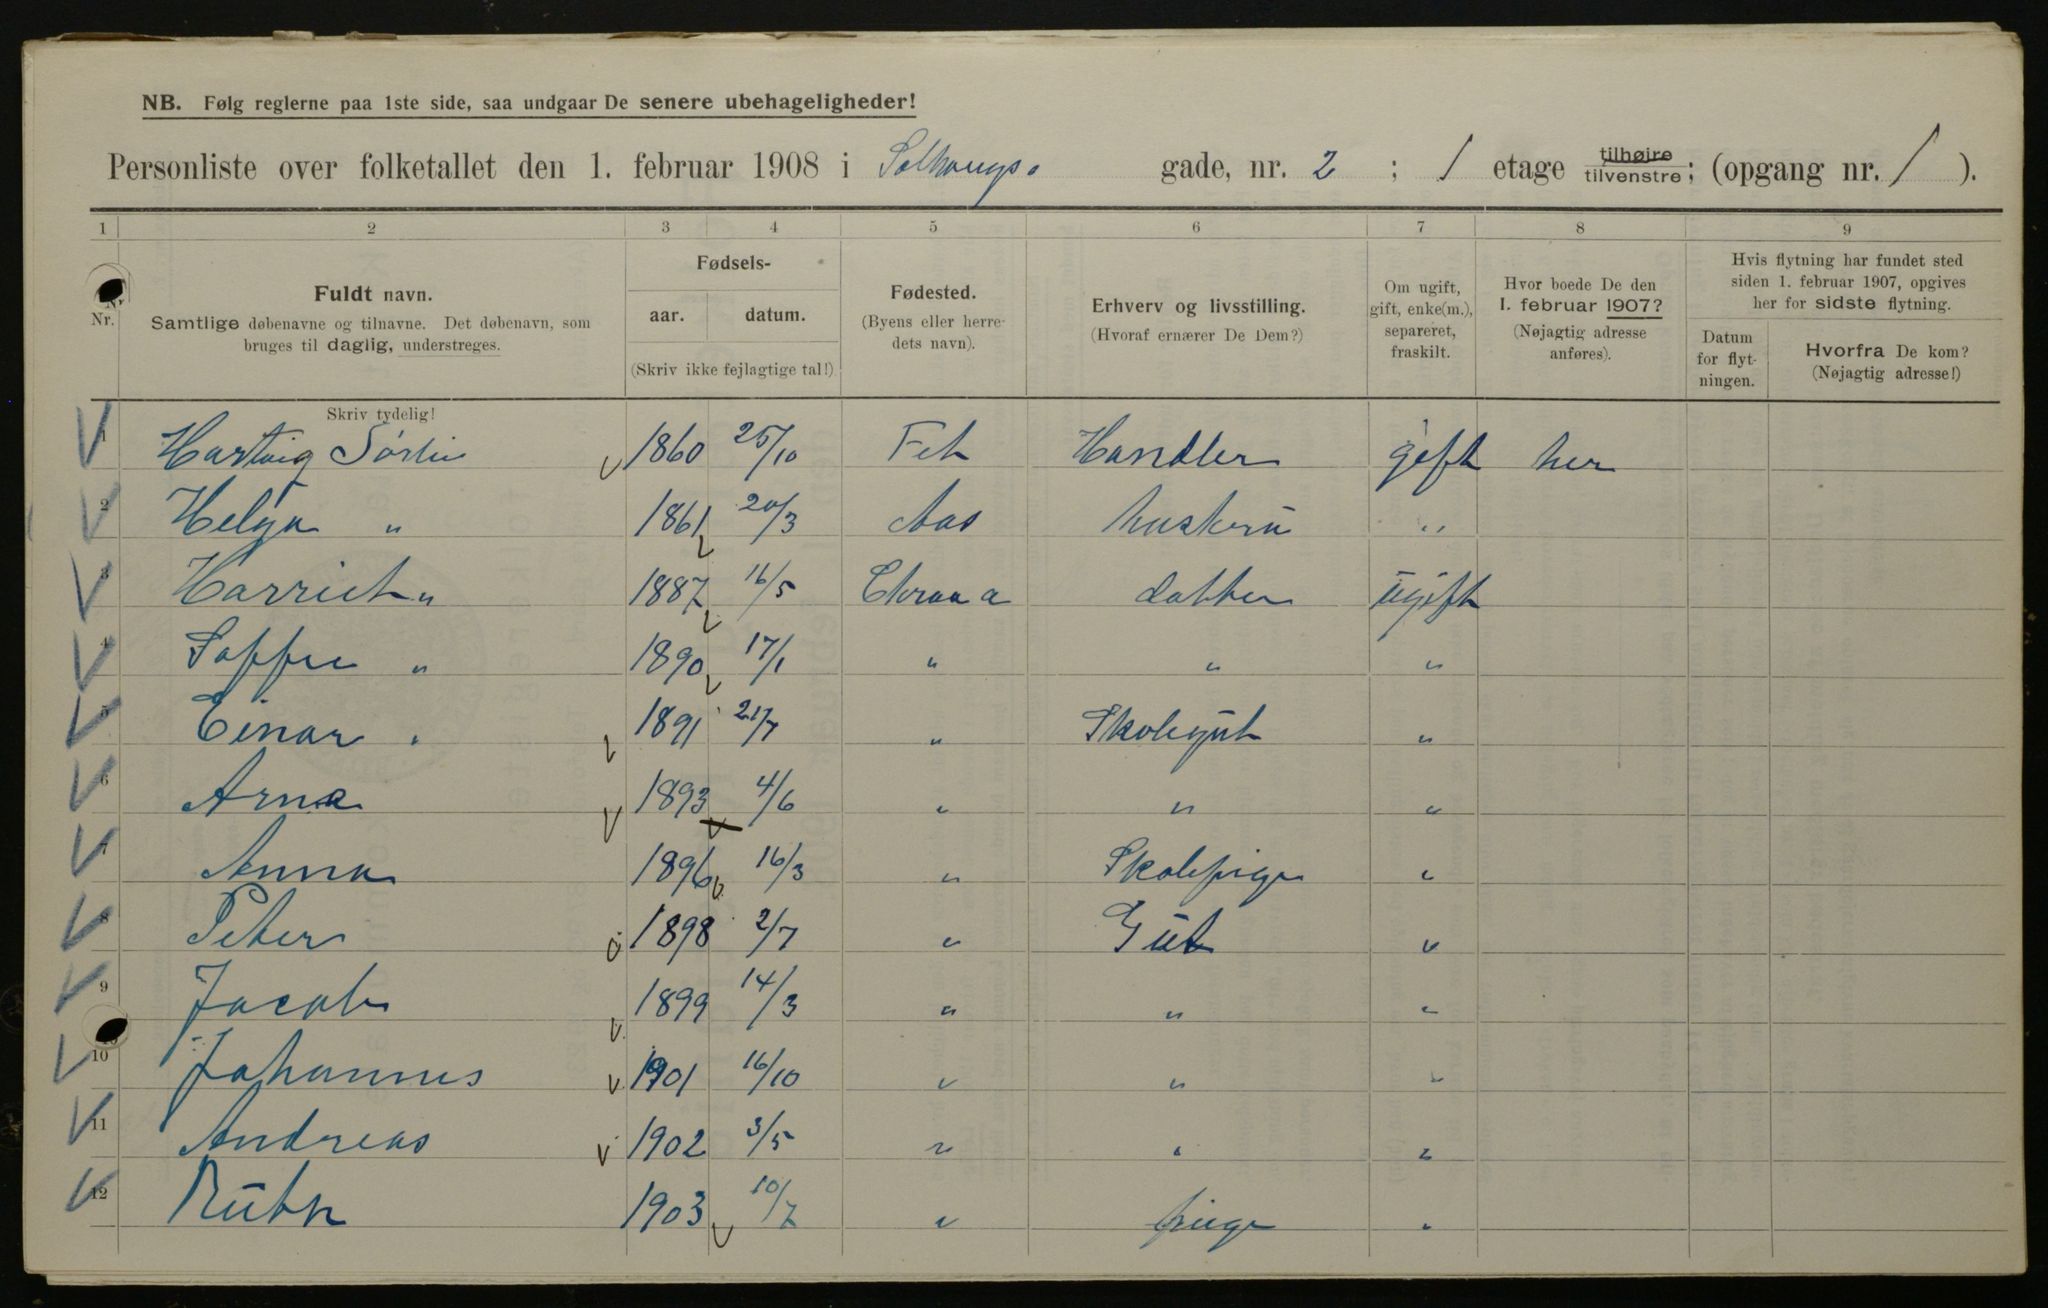 NB. Følg reglerne paa 1ste side, saa undgaar De senere ubehageligheder!
Personliste over folketallet den 1. februar 1908 i Solhaugs. gade, nr. 2 ; 1 etage tilhøire tilvenstre; (opgang nr. 1 ).
1 2 3 4 5 6 7 8 9
Nr.
Fuldt navn.
Samtlige døbenavne og tilnavne. Det døbenavn, som
bruges til daglig, understreges.
Skriv tydelig!
Fødsels-
aar. datum.
(Skriv ikke fejlagtige tal!)
Fødested.
(Byens eller herre-
dets navn).
Erhverv og livsstilling.
(Hvoraf ernærer De Dem?)
Om ugift,
gift, enke(m.),
separeret,
fraskilt.
Hvor boede De den
1. februar 1907?
(Nøjagtig adresse
anføres).
Hvis flytning har fundet sted
siden 1. februar 1907, opgives
her for sidste flytning.
Datum
for flyt-
ningen.
Hvorfra De kom?
(Nøjagtig adresse!)
1 Hartvig Sørlie 1860 25/10 Fet Handler gift her
2 Helga " 1861 20/3 Aas huskrü "
3 Harriet " 1887 16/5 Chraa a datter ügift
4 Soffie " 1890 17/1 " " "
5 Einar " 1891 21/7 " Skolegüt "
6 Arne 1893 4/6 " " "
7 Anna 1896 16/3 " Skolepige "
8 Peter 1898 2/7 " Güt "
9 Jacob 1899 14/3 " " "
10 Johannes 1901 16/10 " " "
11 Andreas 1902 3/5 " " "
12 Rüth 1903 10/7 " pige "